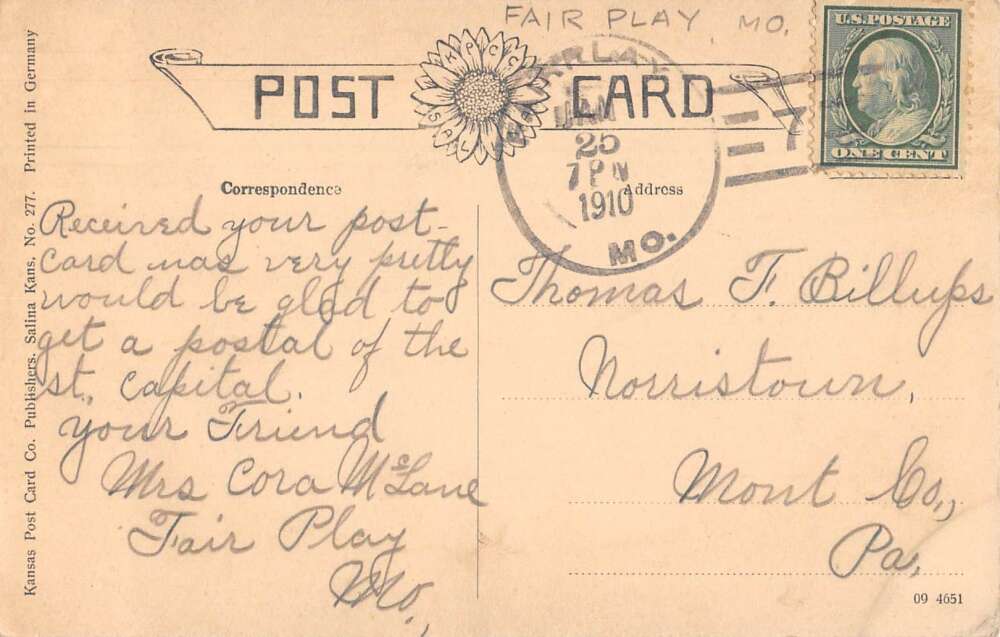 FAIR PLAY, MO.
U.S. POSTAGE
ONE CENT
POST CARD
K.P.C.C.
SAL.
JAN
25
7 PM
1910
MO.
7
Correspondence
Address
Received your post-
card was very pretty
would be glad to
get a postal of the
st., capital.
your Friend
Mrs Cora McLane
Fair Play
Mo.,
Thomas F. Billups
Norristown,
Mont Co.,
Pa.
09 4651
Kansas Post Card Co. Publishers. Salina Kans. No. 277. Printed in Germany